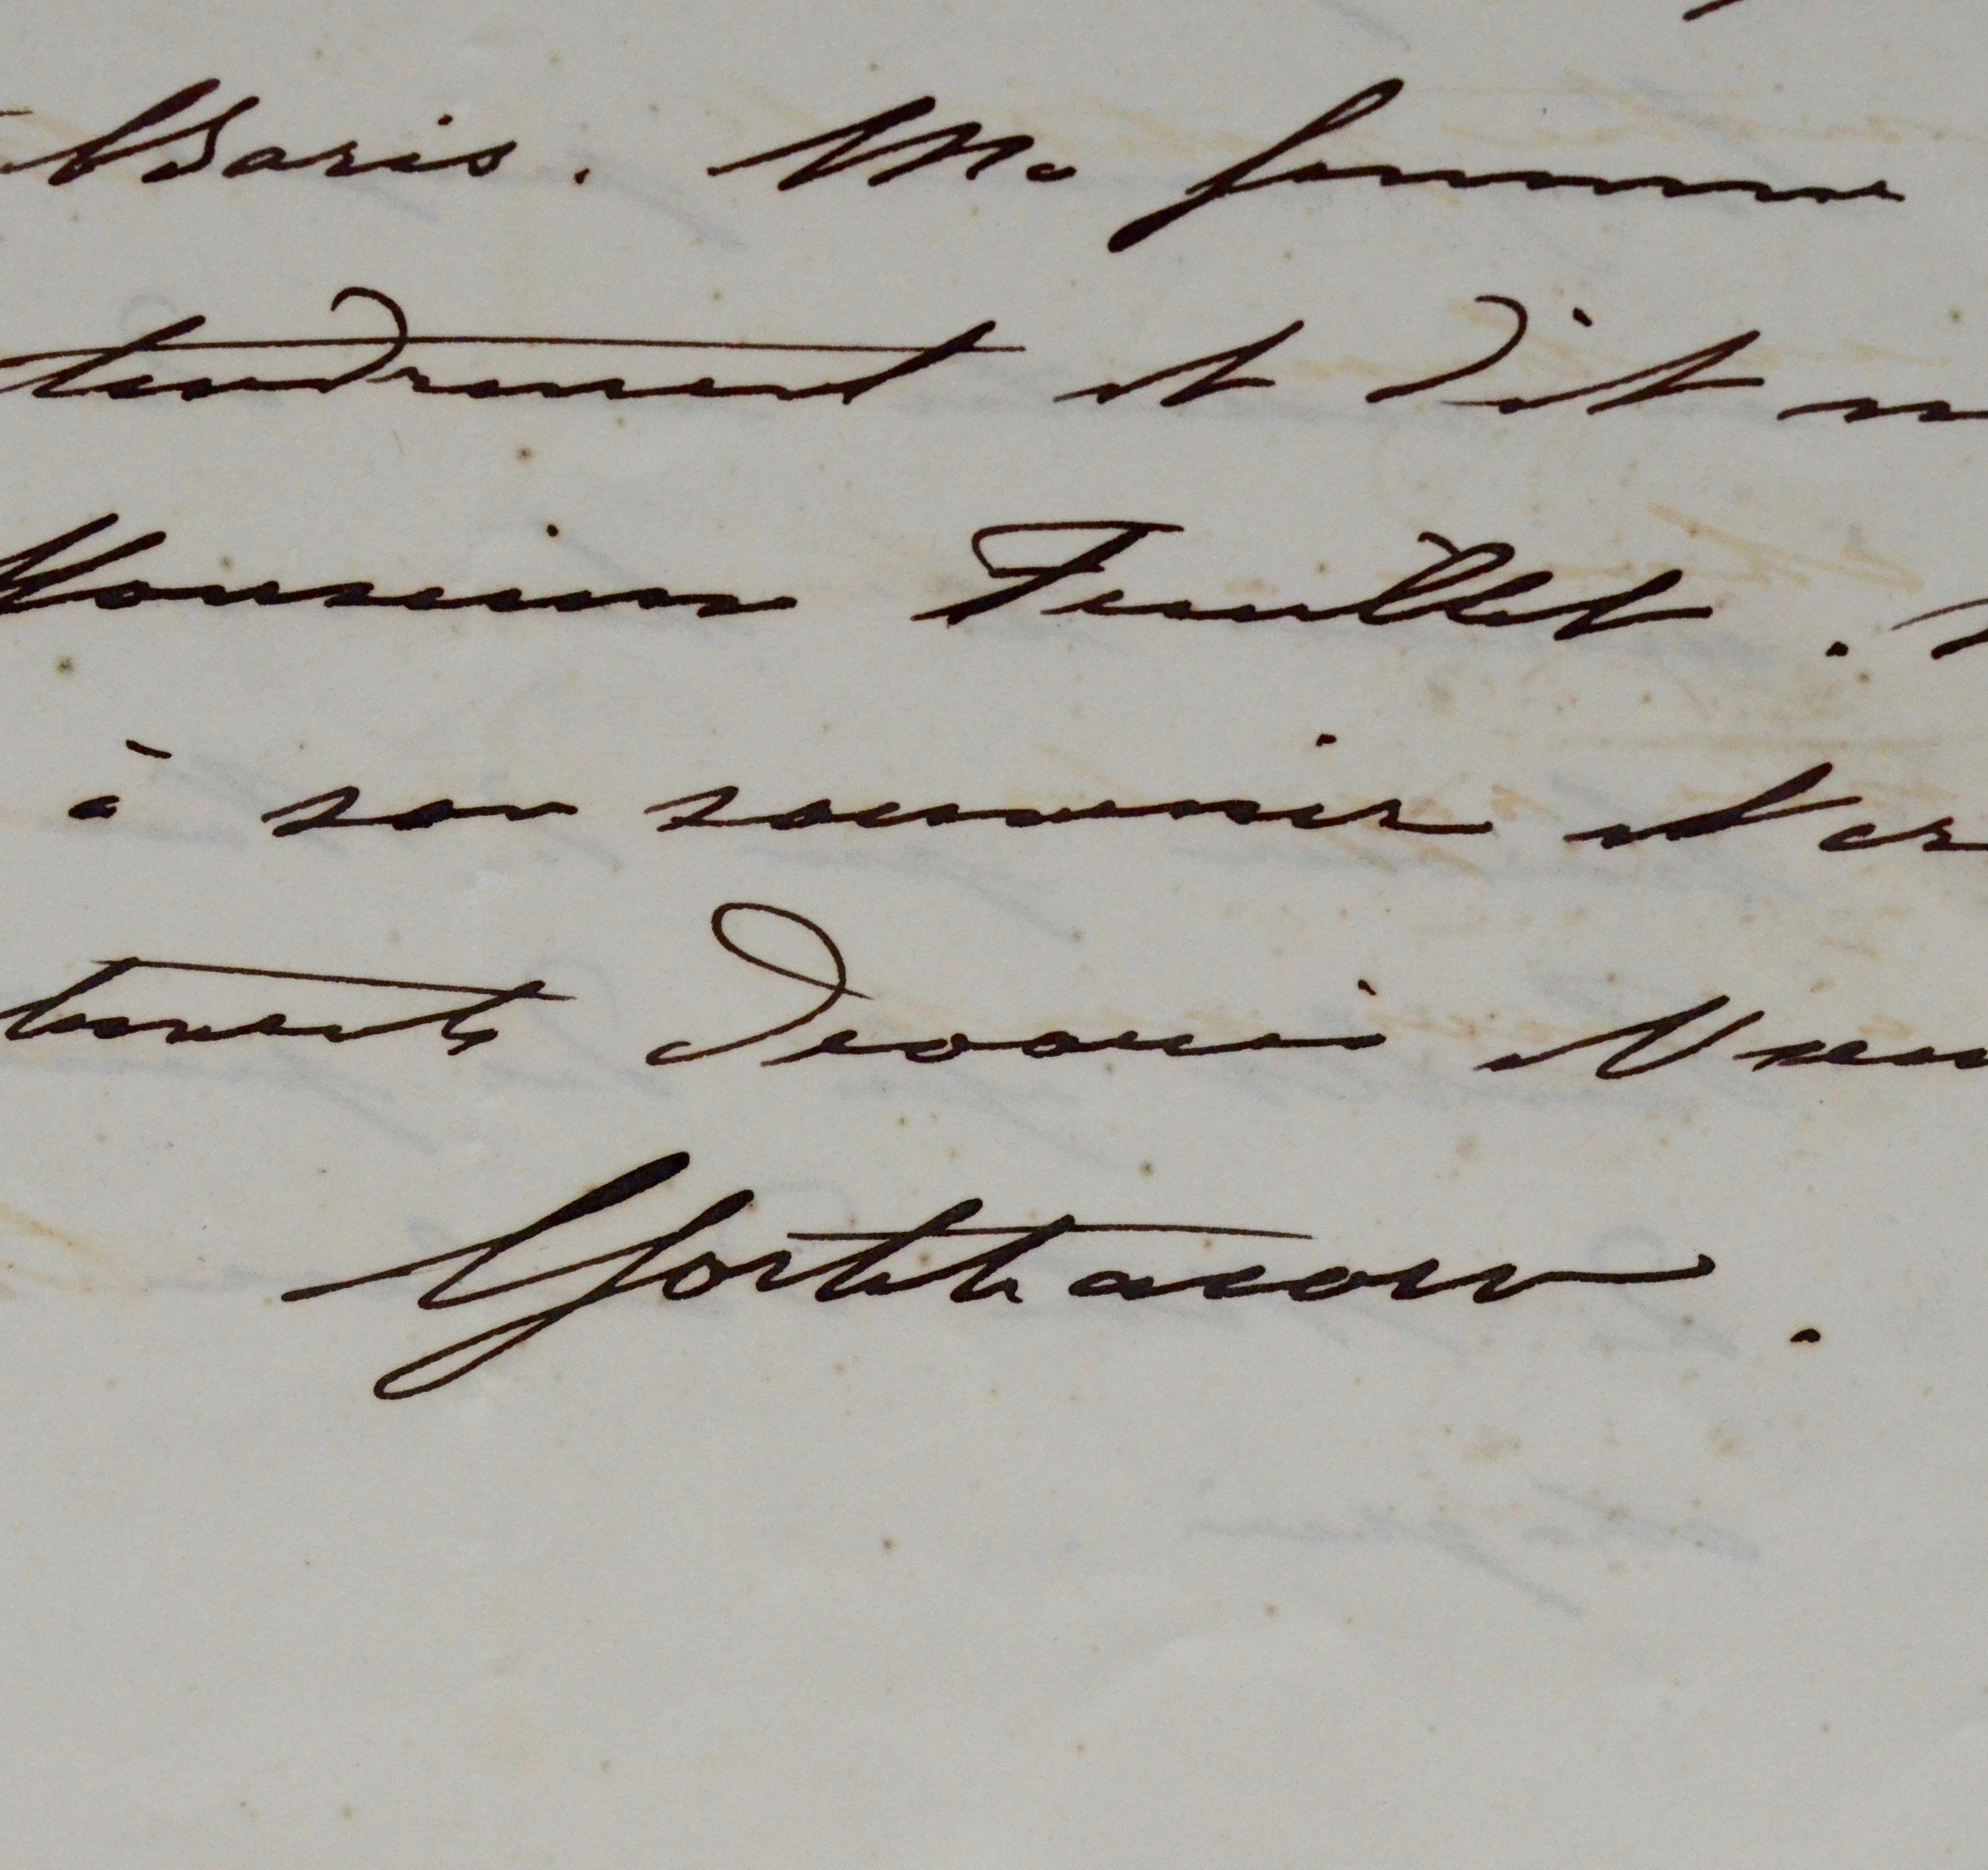 Paris. Ma femme
tendrement et dit
Monsieur Feuillet.
à son souvenir et
Gortchacow.